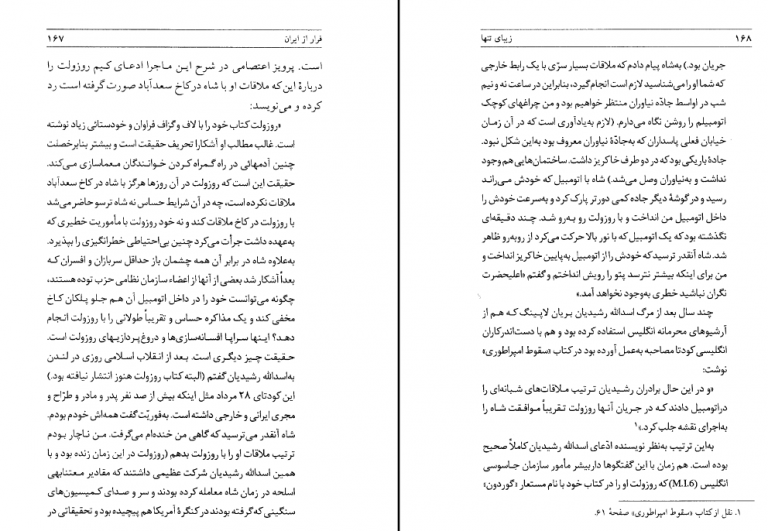 ۱۶۸ زیبای تنها
جریان بود.) به‌شاه پیام دادم که ملاقات بسیار سرّی با یک رابط خارجی
که شما او را می‌شناسید لازم است انجام گیرد، بنابراین در ساعت نه و نیم
شب در اواسط جادّه نیاوران منتظر خواهیم بود و من چراغهای کوچک
اتومبیلم را روشن نگاه می‌دارم. (لازم به‌یادآوری است که در آن زمان
خیابان فعلی پاسداران که به‌جادّه نیاوران معروف بود به‌این شکل نبود.
جادۀ باریکی بود که در دو طرف خاکریز داشت. ساختمان‌هایی هم وجود
نداشت و به‌نیاوران وصل می‌شد.) شاه با اتومبیل که خودش می‌راند
رسید و در گوشۀ دیگر جاده کمی دورتر پارک کرد و به‌سرعت خودش را
داخل اتومبیل من انداخت و با روزولت رو به‌رو شد. چند دقیقه‌ای
نگذشته بود که یک اتومبیل که با نور بالا حرکت می‌کرد از روبه‌رو ظاهر
شد. شاه آنقدر ترسید که خودش را از اتومبیل به‌پایین خاکریز انداخت و
من برای اینکه بیشتر نترسد پتو را رویش انداختم و گفتم «اعلیحضرت
نگران نباشید خطری به‌وجود نخواهد آمد.»
چند سال بعد از مرگ اسدالله رشیدیان بریان لاپینگ که هم از
آرشیوهای محرمانه انگلیس استفاده کرده بود و هم با دست‌اندرکاران
انگلیسی کودتا مصاحبه به‌عمل آورده بود در کتاب «سقوط امپراطوری»
نوشت:
«و در این حال برادران رشیدیان ترتیب ملاقات‌های شبانه‌ای را
در اتومبیل دادند که در جریان آنها روزولت تقریباً موافقت شاه را
به‌اجرای نقشه جلب کرد.»۱
به‌این ترتیب به‌نظر نویسنده ادّعای اسدالله رشیدیان کاملاً صحیح
بوده است. هم زمان با این گفتگوها داربیشر مأمور سازمان جاسوسی
انگلیس (M.I.6) که روزولت او را در کتاب خود با نام مستعار «گوردون»
۱. نقل از کتاب «سقوط امپراطوری» صفحۀ ۶۱.
فرار از ایران ۱۶۷
است. پرویز اعتصامی در شرح این ماجرا ادعای کیم روزولت را
دربارۀ این که ملاقات او با شاه در کاخ سعدآباد صورت گرفته است رد
کرده و می‌نویسد:
«روزولت کتاب خود را با لاف و گزاف فراوان و خودستائی زیاد نوشته
است. غالب مطالب او آشکارا تحریف حقیقت است و بیشتر بنابر خصلت
چنین آدمهائی در راه گمراه کردن خوانندگان معماسازی می‌کند.
حقیقت این است که روزولت در آن روزها هرگز با شاه در کاخ سعدآباد
ملاقات نکرده است، چه در آن شرایط حساس نه شاه ترسو حاضر می‌شد
با روزولت در کاخ ملاقات کند و نه خود روزولت با مأموریت خطیری که
به‌عهده داشت جرأت می‌کرد چنین بی‌احتیاطی خطرانگیزی را بپذیرد.
به‌علاوه شاه در برابر آن همه چشمان باز حداقل سربازان و افسران که
بعداً آشکار شد بعضی از آنها از اعضاء سازمان نظامی حزب توده هستند،
چگونه می‌توانست خود را در داخل اتومبیل آن هم جلو پلکان کاخ
مخفی کند و یک مذاکره حساس و تقریباً طولانی را با روزولت انجام
دهد؟ اینها سراپا افسانه‌سازی‌ها و دروغ‌پردازیهای روزولت است.
حقیقت چیز دیگری است. بعد از انقلاب اسلامی روزی در لندن
به‌اسدالله رشیدیان گفتم (البته کتاب روزولت هنوز انتشار نیافته بود.)
این کودتای ۲۸ مرداد مثل اینکه بیش از صد نفر پدر و مادر و طرّاح و
مجری ایرانی و خارجی داشته است. به‌فوریّت گفت همه‌اش خودم بودم.
شاه آنقدر می‌ترسید که گاهی من خنده‌ام می‌گرفت. من ناچار بودم
ترتیب ملاقات او را با روزولت بدهم (روزولت در این زمان زنده بود و با
همین اسدالله رشیدیان شرکت عظیمی داشتند که مقادیر معتنابهی
اسلحه در زمان شاه معامله کرده بودند و سر و صدای کمیسیون‌های
سنگینی که گرفته بودند در کنگرۀ آمریکا هم پیچیده بود و تحقیقاتی در